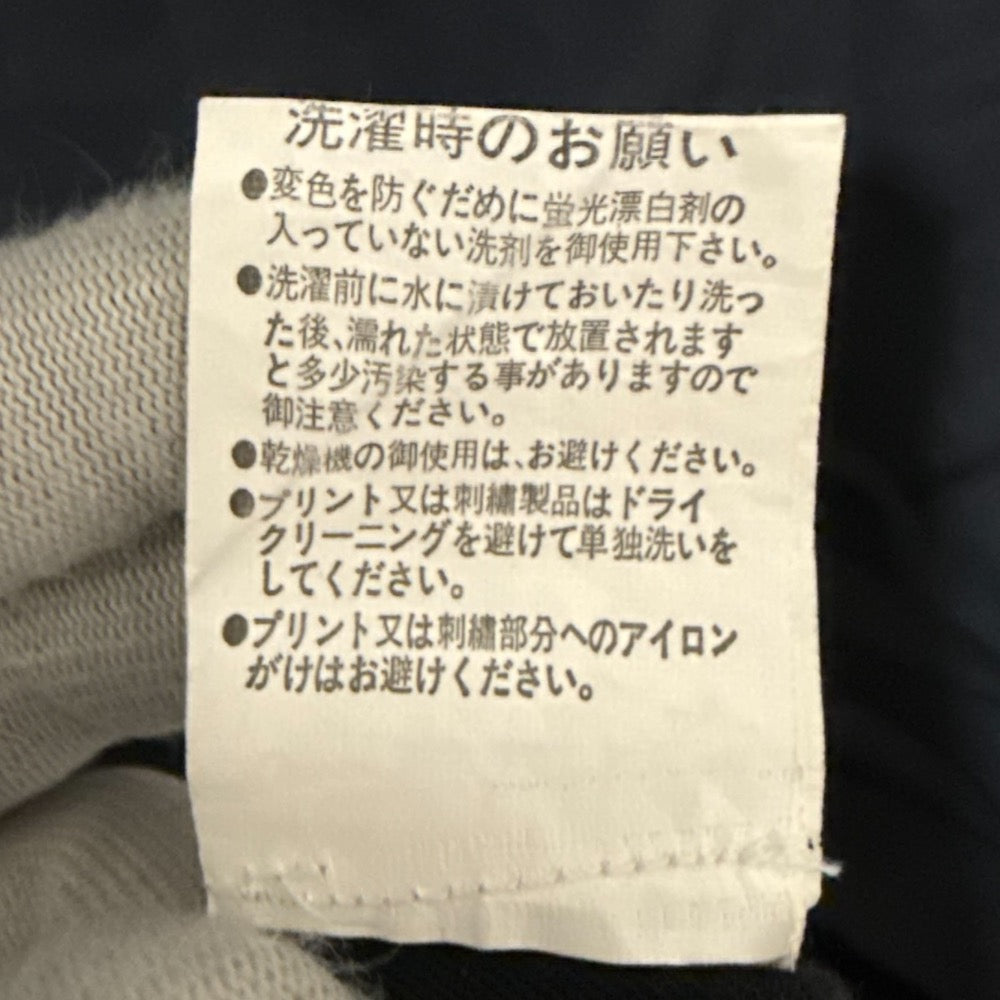 洗濯時のお願い
●変色を防ぐだめに蛍光漂白剤の
入っていない洗剤を御使用下さい。
●洗濯前に水に漬けておいたり洗っ
た後、濡れた状態で放置されます
と多少汚染する事がありますので
御注意ください。
●乾燥機の御使用は、お避けください。
●プリント又は刺繍製品はドライ
クリーニングを避けて単独洗いを
してください。
●プリント又は刺繍部分へのアイロン
がけはお避けください。